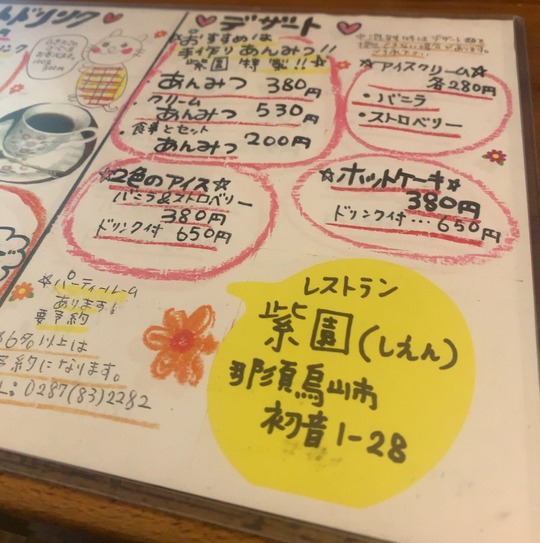 ドリンク
デザート
おすすめは
手作りあんみつ!!
紫園特製!!
あんみつ 380円
・クリーム
あんみつ 530円
・食事とセット
あんみつ 200円
☆アイスクリーム☆
各280円
・バニラ
・ストロベリー
☆2色のアイス☆
バニラ&ストロベリー
380円
ドリンク付 650円
☆ホットケーキ☆
380円
ドリンク付…650円
☆パーティールーム
あります!
要予約
以上は
約になります。
0287(83)2282
レストラン
紫園(しえん)
那須烏山市
初音1-28